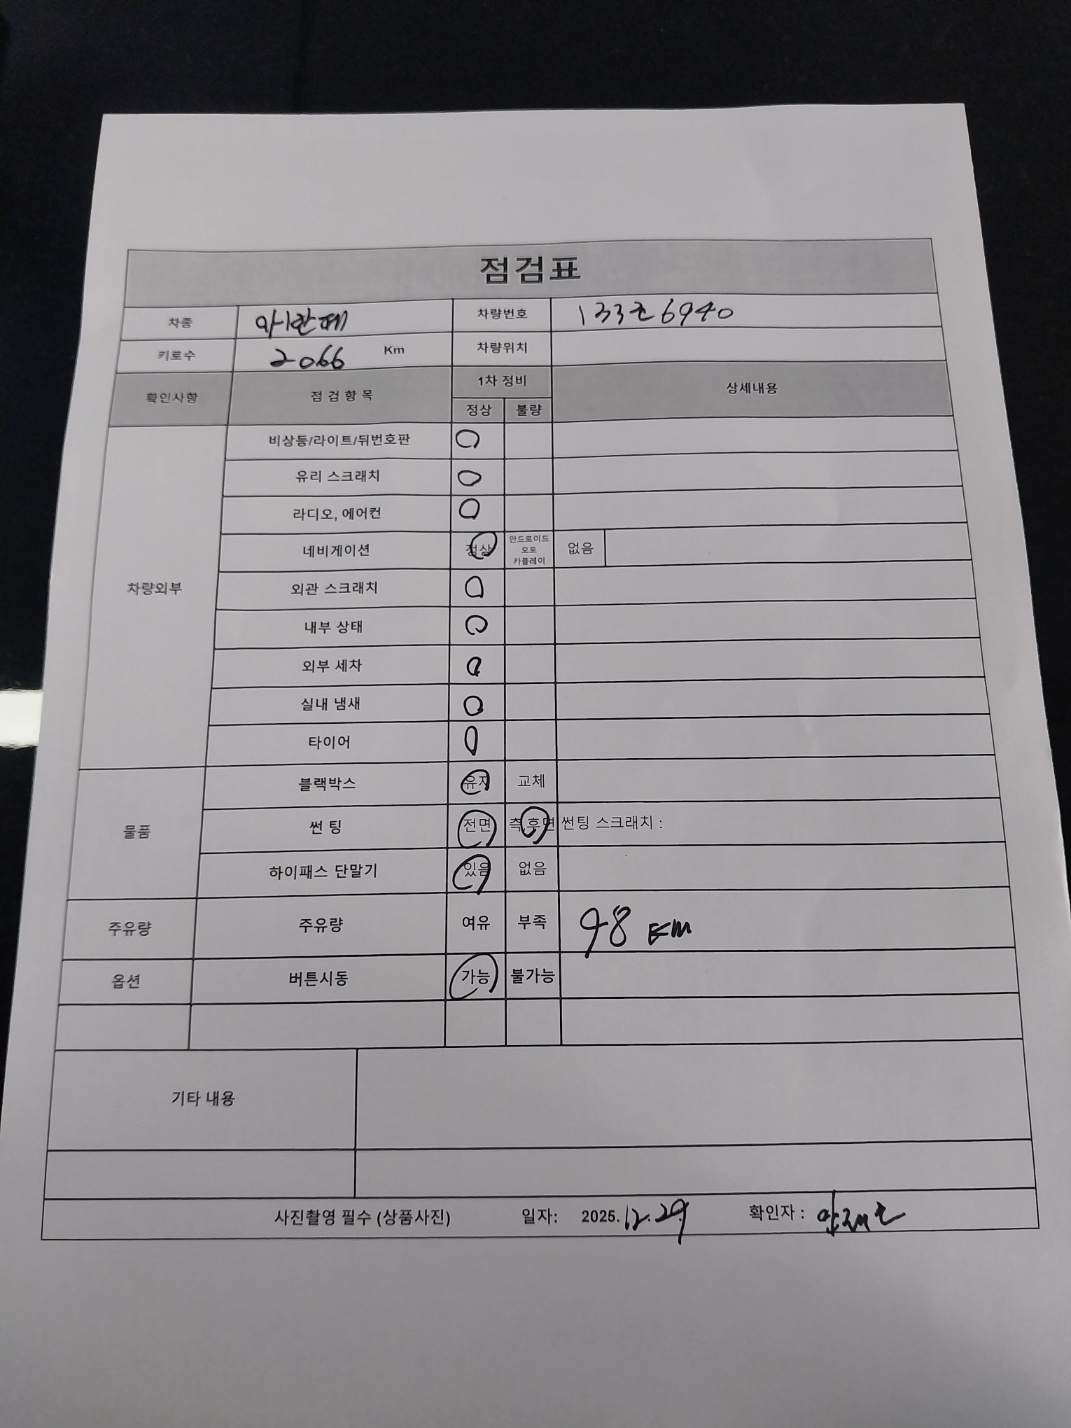 점검표
차종 아반떼 차량번호
키로수 2066 Km 차량위치
확인사항 점검항목 1차 정비 상세내용
정상 불량
차량외부
비상등/라이트/뒤번호판 O
유리 스크래치 O
라디오, 에어컨 O
네비게이션 정상 안드로이드 오토 카플레이 없음
외관 스크래치 O
내부 상태 O
외부 세차 O
실내 냄새 O
타이어 O
물품
블랙박스 유지 교체
썬팅 전면 측후면 썬팅 스크래치 :
하이패스 단말기 있음 없음
주유량 주유량 여유 부족 98 km
옵션 버튼시동 가능 불가능
기타 내용
사진촬영 필수 (상품사진) 일자: 2025.12.29 확인자 :